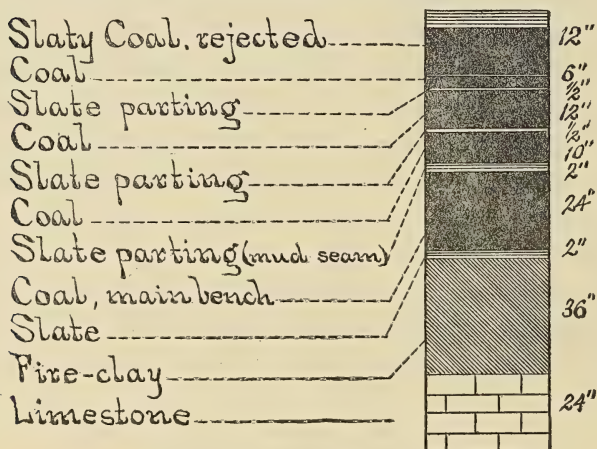 Slaty Coal, rejected
Coal
Slate parting
Coal
Slate parting
Coal
Slate parting (mud seam)
Coal, main bench
Slate
Fire-clay
Limestone
12"
6"
½"
12"
½"
10"
2"
24"
2"
36"
24"